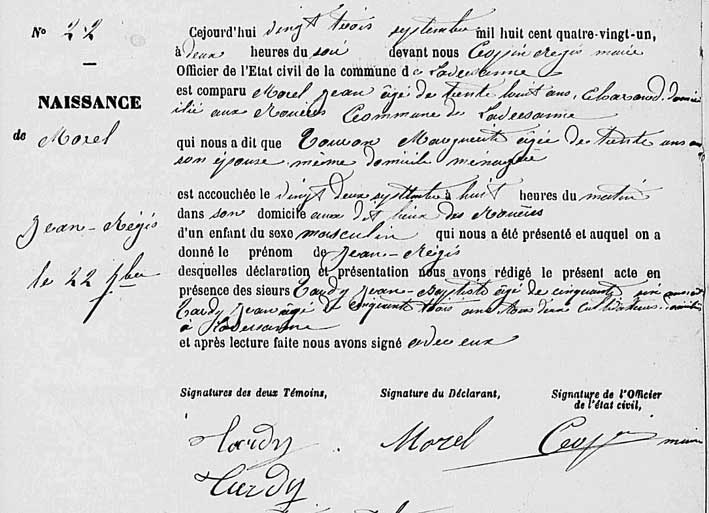 N° 22
NAISSANCE
de Morel
Jean-Régis
le 22 7bre
Cejourd'hui vingt trois septembre mil huit cent quatre-vingt-un,
à deux heures du soir devant nous Régis maire
Officier de l'Etat civil de la commune de Ladersanne
est comparu Morel Jean âgé de trente huit ans, domici
cilié aux Rouères Commune de Ladersanne
qui nous a dit que Marguerite âgée de trente ans
son épouse même domicile ménagère
est accouchée le vingt deux septembre à huit heures du matin
dans son domicile aux dit lieux des Rouères
d'un enfant du sexe masculin qui nous a été présenté et auquel on a
donné le prénom de Jean-Régis
desquelles déclaration et présentation nous avons rédigé le présent acte en
présence des sieurs Tardy Jean-Baptiste âgé de cinquante ans et
Tardy Jean âgé de cinquante trois ans tous deux cultivateurs
à Ladersanne
et après lecture faite nous avons signé avec eux
Signatures des deux Témoins, Signature du Déclarant, Signature de l'Officier
de l'état civil,
Tardy Morel maire
Tardy